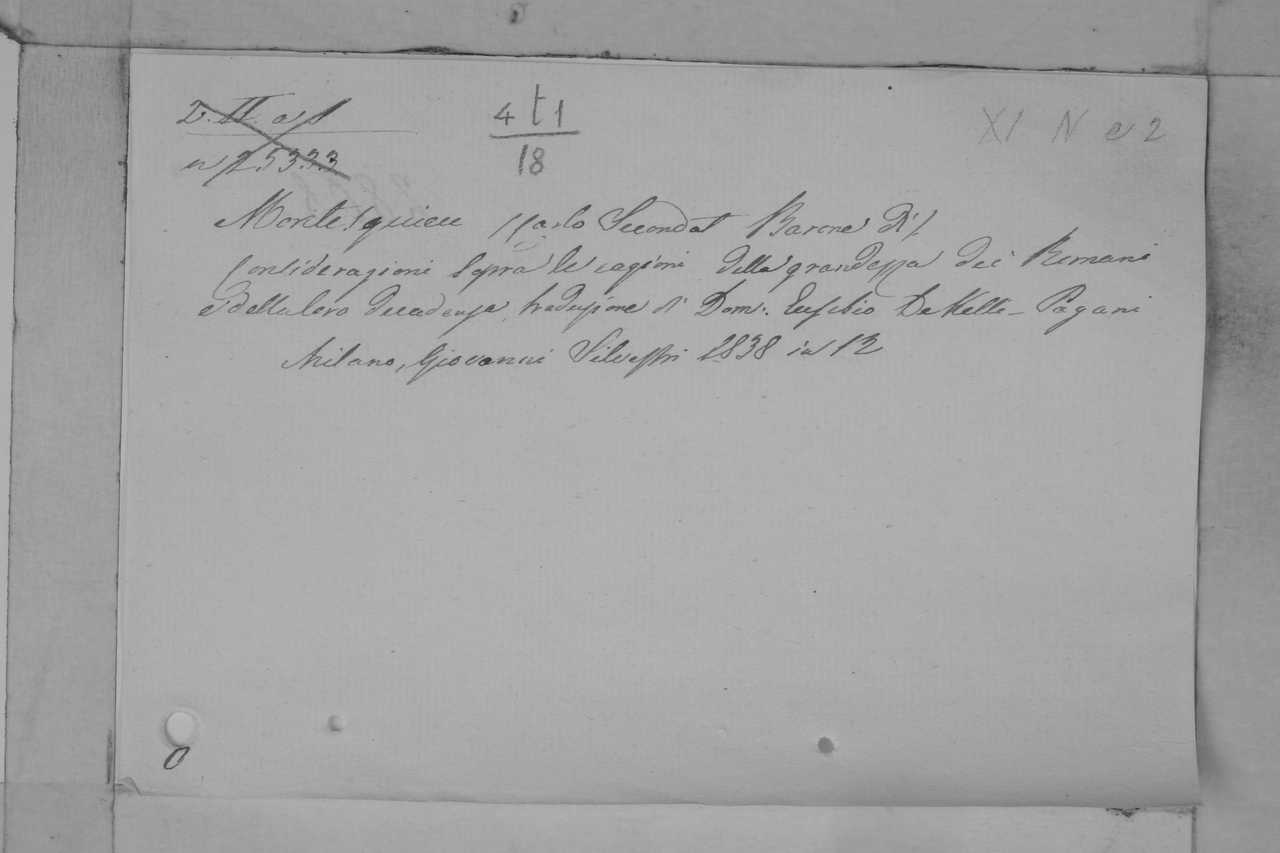 4 t 1
18
XI N e 2
Montesquieu (Carlo Secondat Barone di)
Considerazioni sopra le cagioni della grandezza dei Romani
e della loro decadenza, traduzione di Dom. Eusebio Dekelli-Pagani
Milano, Giovanni Silvestri 1838 in 12
O